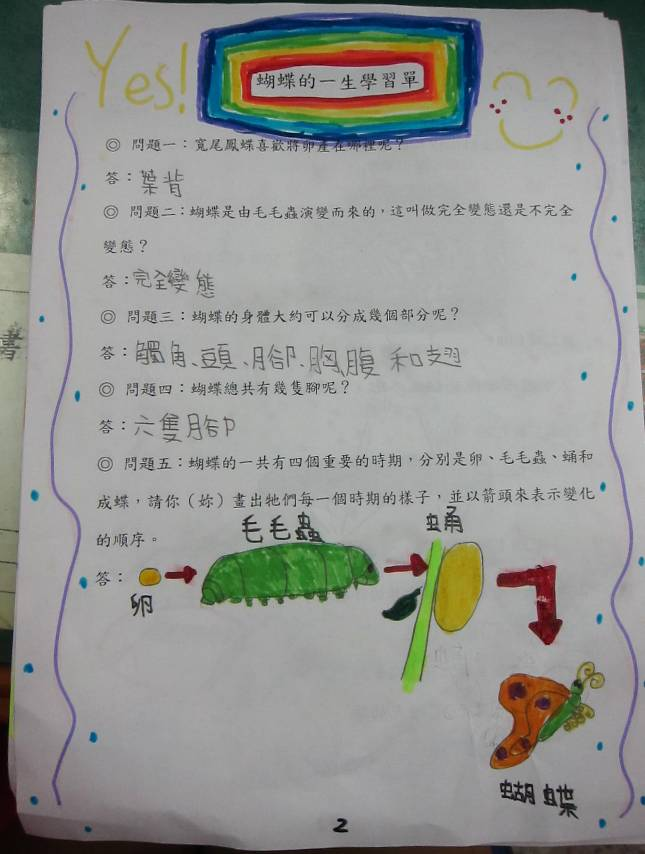 Yes!
蝴蝶的一生學習單
◎ 問題一：寬尾鳳蝶喜歡將卵產在哪裡呢？
答：葉背
◎ 問題二：蝴蝶是由毛毛蟲演變而來的，這叫做完全變態還是不完全
變態？
答：完全變態
◎ 問題三：蝴蝶的身體大約可以分成幾個部分呢？
答：觸角、頭、腳、胸、腹和翅
◎ 問題四：蝴蝶總共有幾隻腳呢？
答：六隻腳
◎ 問題五：蝴蝶的一共有四個重要的時期，分別是卵、毛毛蟲、蛹和
成蝶，請你（妳）畫出牠們每一個時期的樣子，並以箭頭來表示變化
的順序。
毛毛蟲
蛹
答：
卵
蝴蝶
2
書